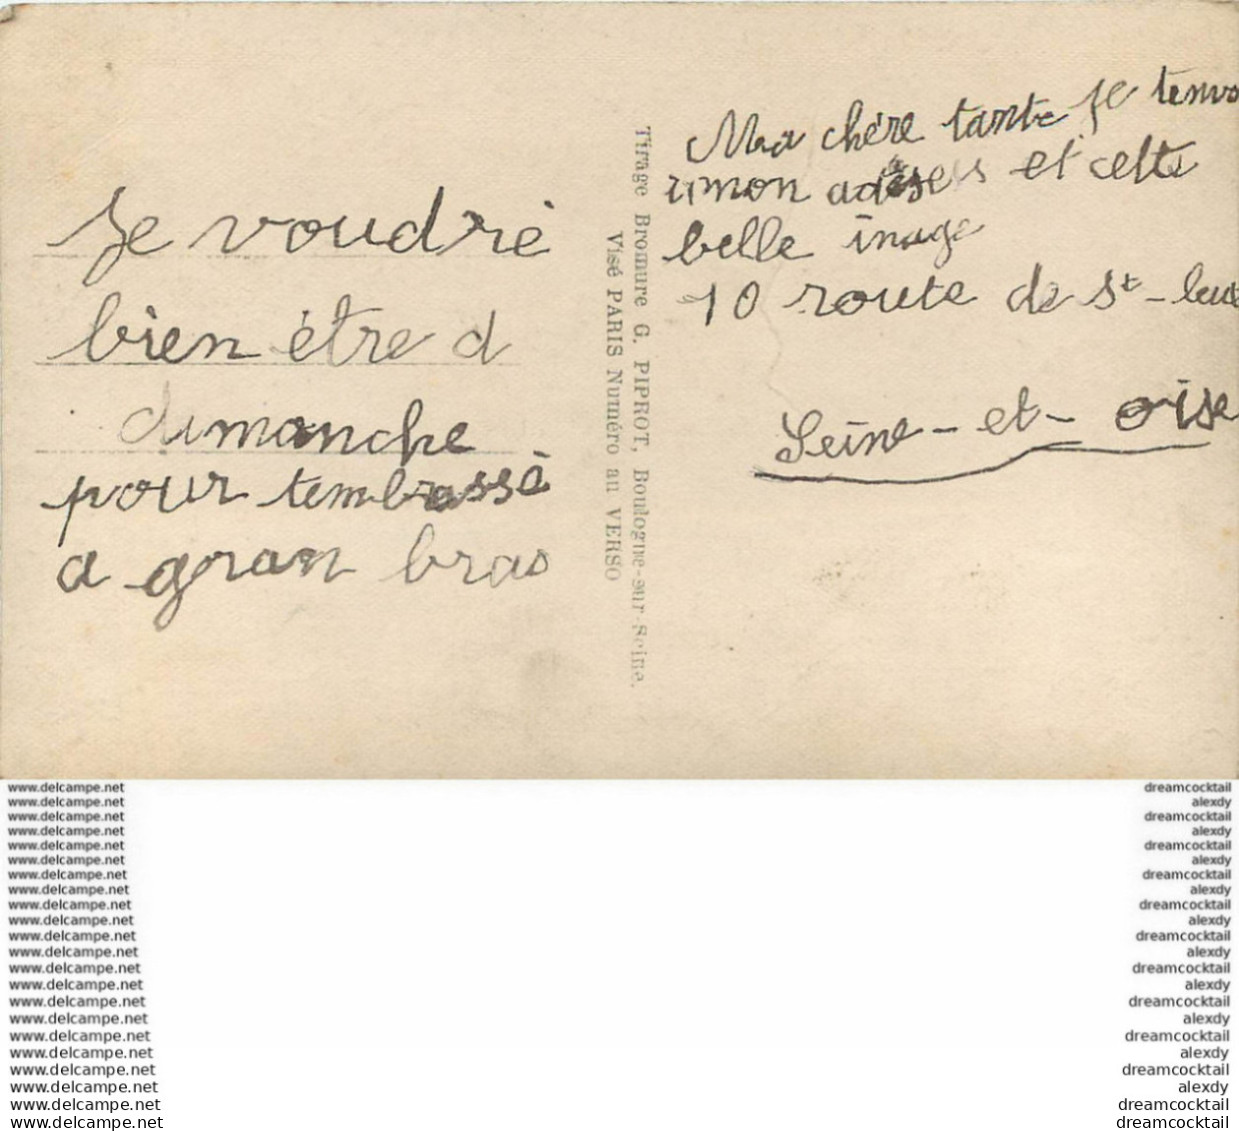 Je voudrè
bien être d
dimanche
pour tembrassè
a gran bras
Tirage Bromure G. PIPROT, Boulogne-sur-Seine.
Visé PARIS Numéro au VERSO
Ma chère tante je tenvo
mon et cette
belle inage
10 route de St - leu
Seine - et - oise
www.delcampe.net
www.delcampe.net
www.delcampe.net
www.delcampe.net
www.delcampe.net
www.delcampe.net
www.delcampe.net
www.delcampe.net
www.delcampe.net
www.delcampe.net
www.delcampe.net
www.delcampe.net
www.delcampe.net
www.delcampe.net
www.delcampe.net
www.delcampe.net
www.delcampe.net
www.delcampe.net
www.delcampe.net
www.delcampe.net
www.delcampe.net
www.delcampe.net
dreamcocktail
alexdy
dreamcocktail
alexdy
dreamcocktail
alexdy
dreamcocktail
alexdy
dreamcocktail
alexdy
dreamcocktail
alexdy
dreamcocktail
alexdy
dreamcocktail
alexdy
dreamcocktail
alexdy
dreamcocktail
alexdy
dreamcocktail
dreamcocktail